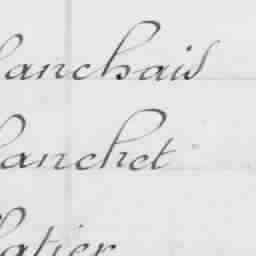 lanchais
lanchet
latier